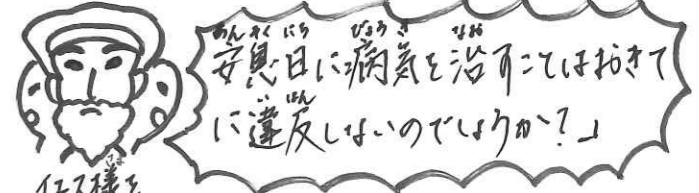 安息日に病気を治すことはおきて
に違反しないのでしょうか?」
イエス様を